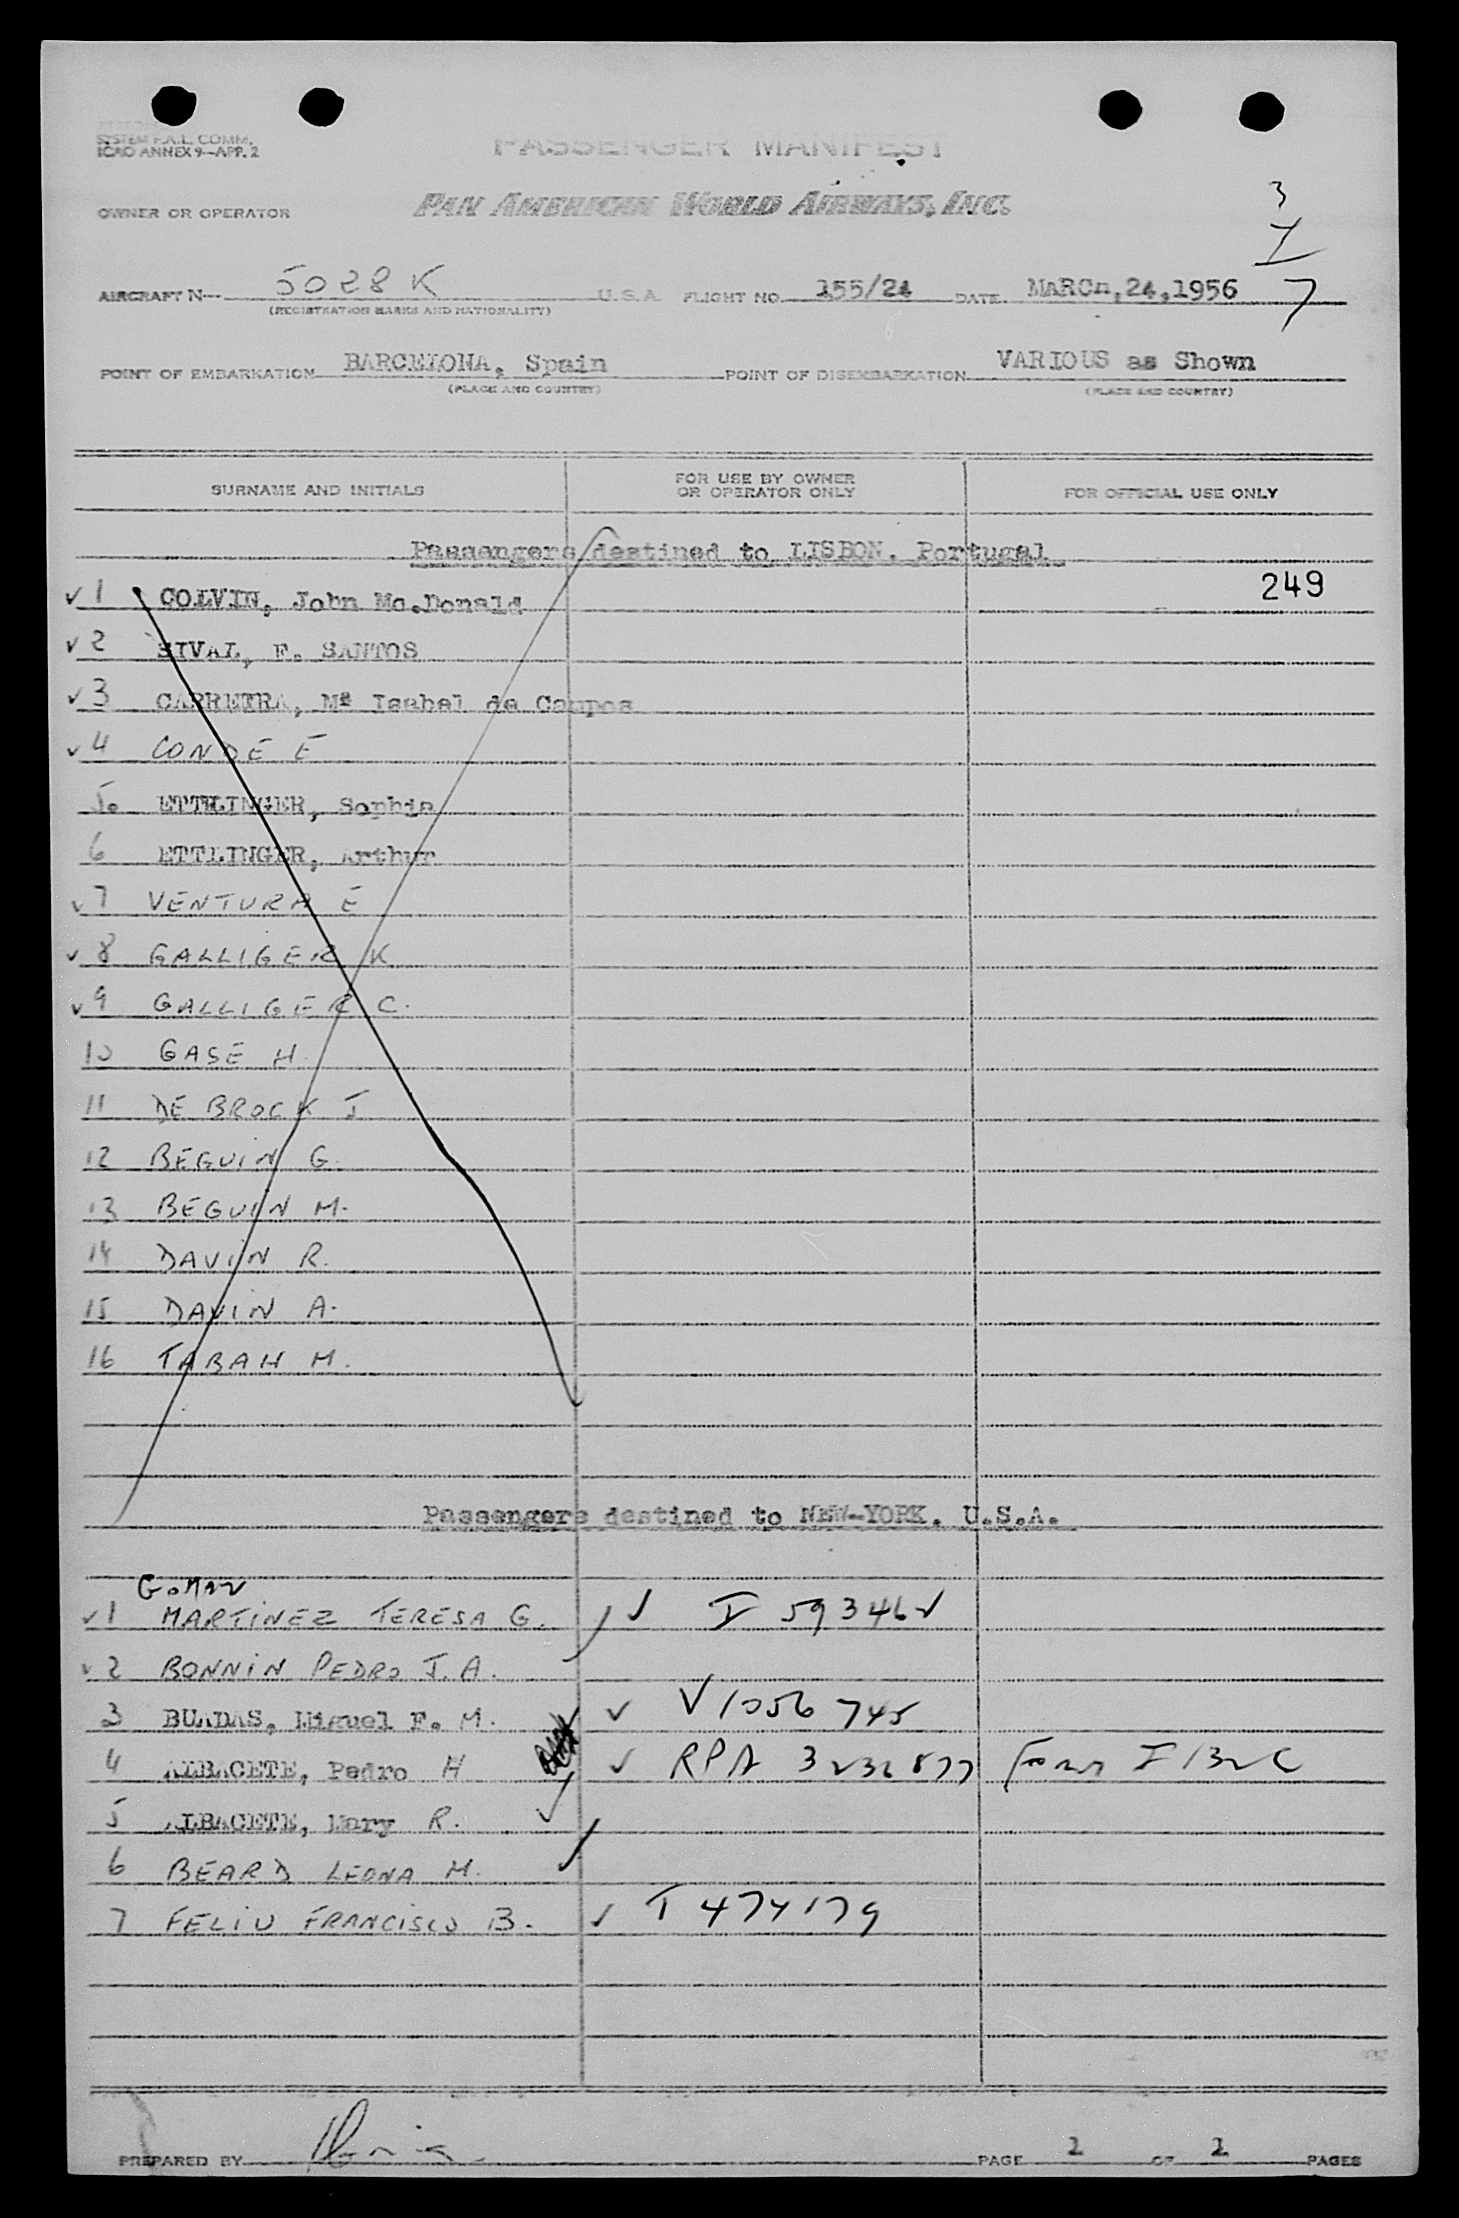 SYSTEM F.A.L. COMM.
ICAO ANNEX 9—APP. 2
PASSENGER MANIFEST
OWNER OR OPERATOR PAN AMERICAN WORLD AIRWAYS, INC.
3
7
AIRCRAFT N— 5028K U.S.A. FLIGHT NO. 155/24 DATE MARCH,24,1956
(REGISTRATION MARKS AND NATIONALITY)
POINT OF EMBARKATION BARCELONA, Spain POINT OF DISEMBARKATION VARIOUS as Shown
(PLACE AND COUNTRY) (PLACE AND COUNTRY)
SURNAME AND INITIALS FOR USE BY OWNER OR OPERATOR ONLY FOR OFFICIAL USE ONLY
Passengers destined to LISBON, Portugal
249
✓ 1 COLVIN, John Mc.Donald
✓ 2 SIVAL, F. SANTOS
✓ 3 CARREIRA, Mª Isabel de Campos
✓ 4 CONDE E
5. ETTLINGER, Sophia
6 ETTLINGER, Arthur
✓ 7 VENTURA E
✓ 8 GALLIGER K
✓ 9 GALLIGER C.
10 GASE H.
11 DE BROCK J
12 BEGUIN G.
13 BEGUIN M.
14 DAVIN R.
15 DAVIN A.
16 TABAH M.
Passengers destined to NEW-YORK, U.S.A.
✓ 1 MARTINEZ TERESA G. ✓ I 59346 ✓
✓ 2 BONNIN PEDRO J.A.
3 BUADAS, Miguel F. M. ✓ V1056745
4 ALBACETE, Pedro H ✓ RPA Form I 132C
5 ALBACETE, Mary R. ✓
6 BEARD LEONA M. ✓
7 FELIU FRANCISCO B. ✓ T 474179
PREPARED BY PAGE 1 OF 1 PAGES